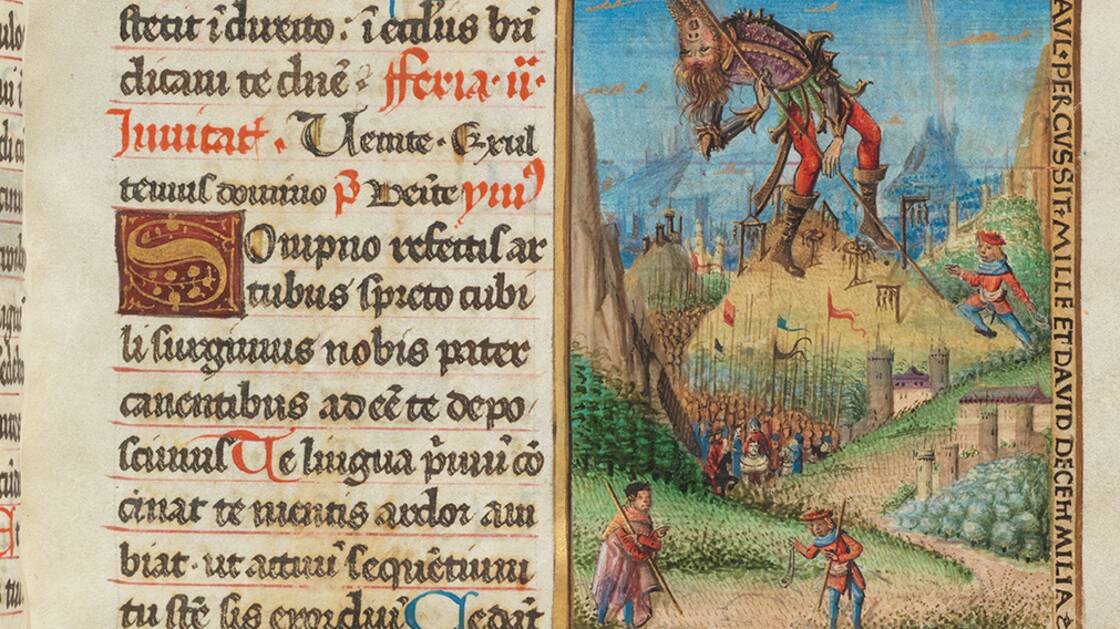 stetit i directo : i ecclus bn
dicam te dnē · fferia · ii ·
Inuitat · Uenite · Exul
temus domino p̄ Venite ymꝰ
Sompno refectis ar
tubus spreto cubi
li surgimus nobis pater
canentibus adeē te depo
scimus Te lingua p̄mū cō
cinat te mentis ardor am
biat · ut actuū sequētium
tu scē sis exordiū Cedāt
AVL · PERCVSSIT · MILLE ET DAVID DECEM MILIA